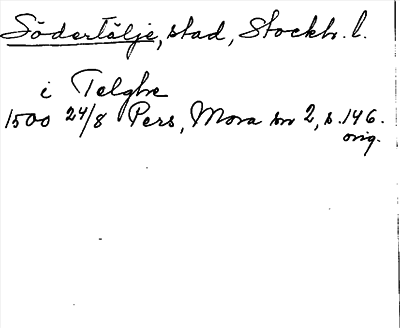 Södertälje, stad, Stockh. l.
i Telghe
1500 24/8 Pers, Mora sn 2, s. 146.
orig.